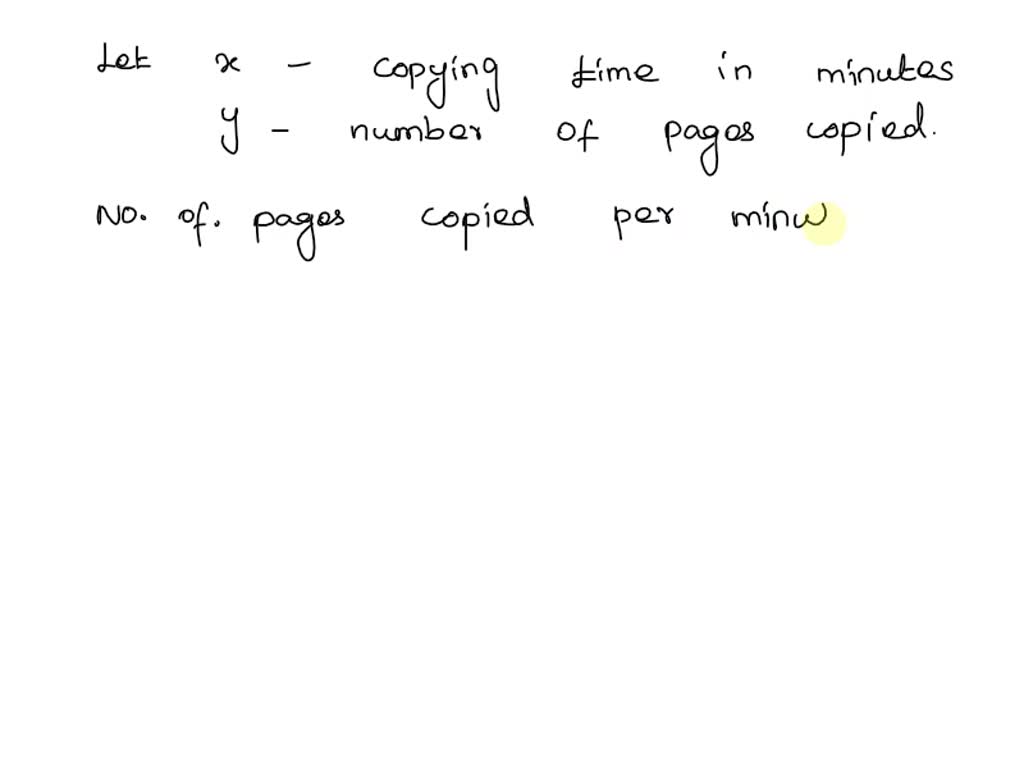 Let x - copying time in minutes
y - number of pages copied.
No. of. pages copied per minu